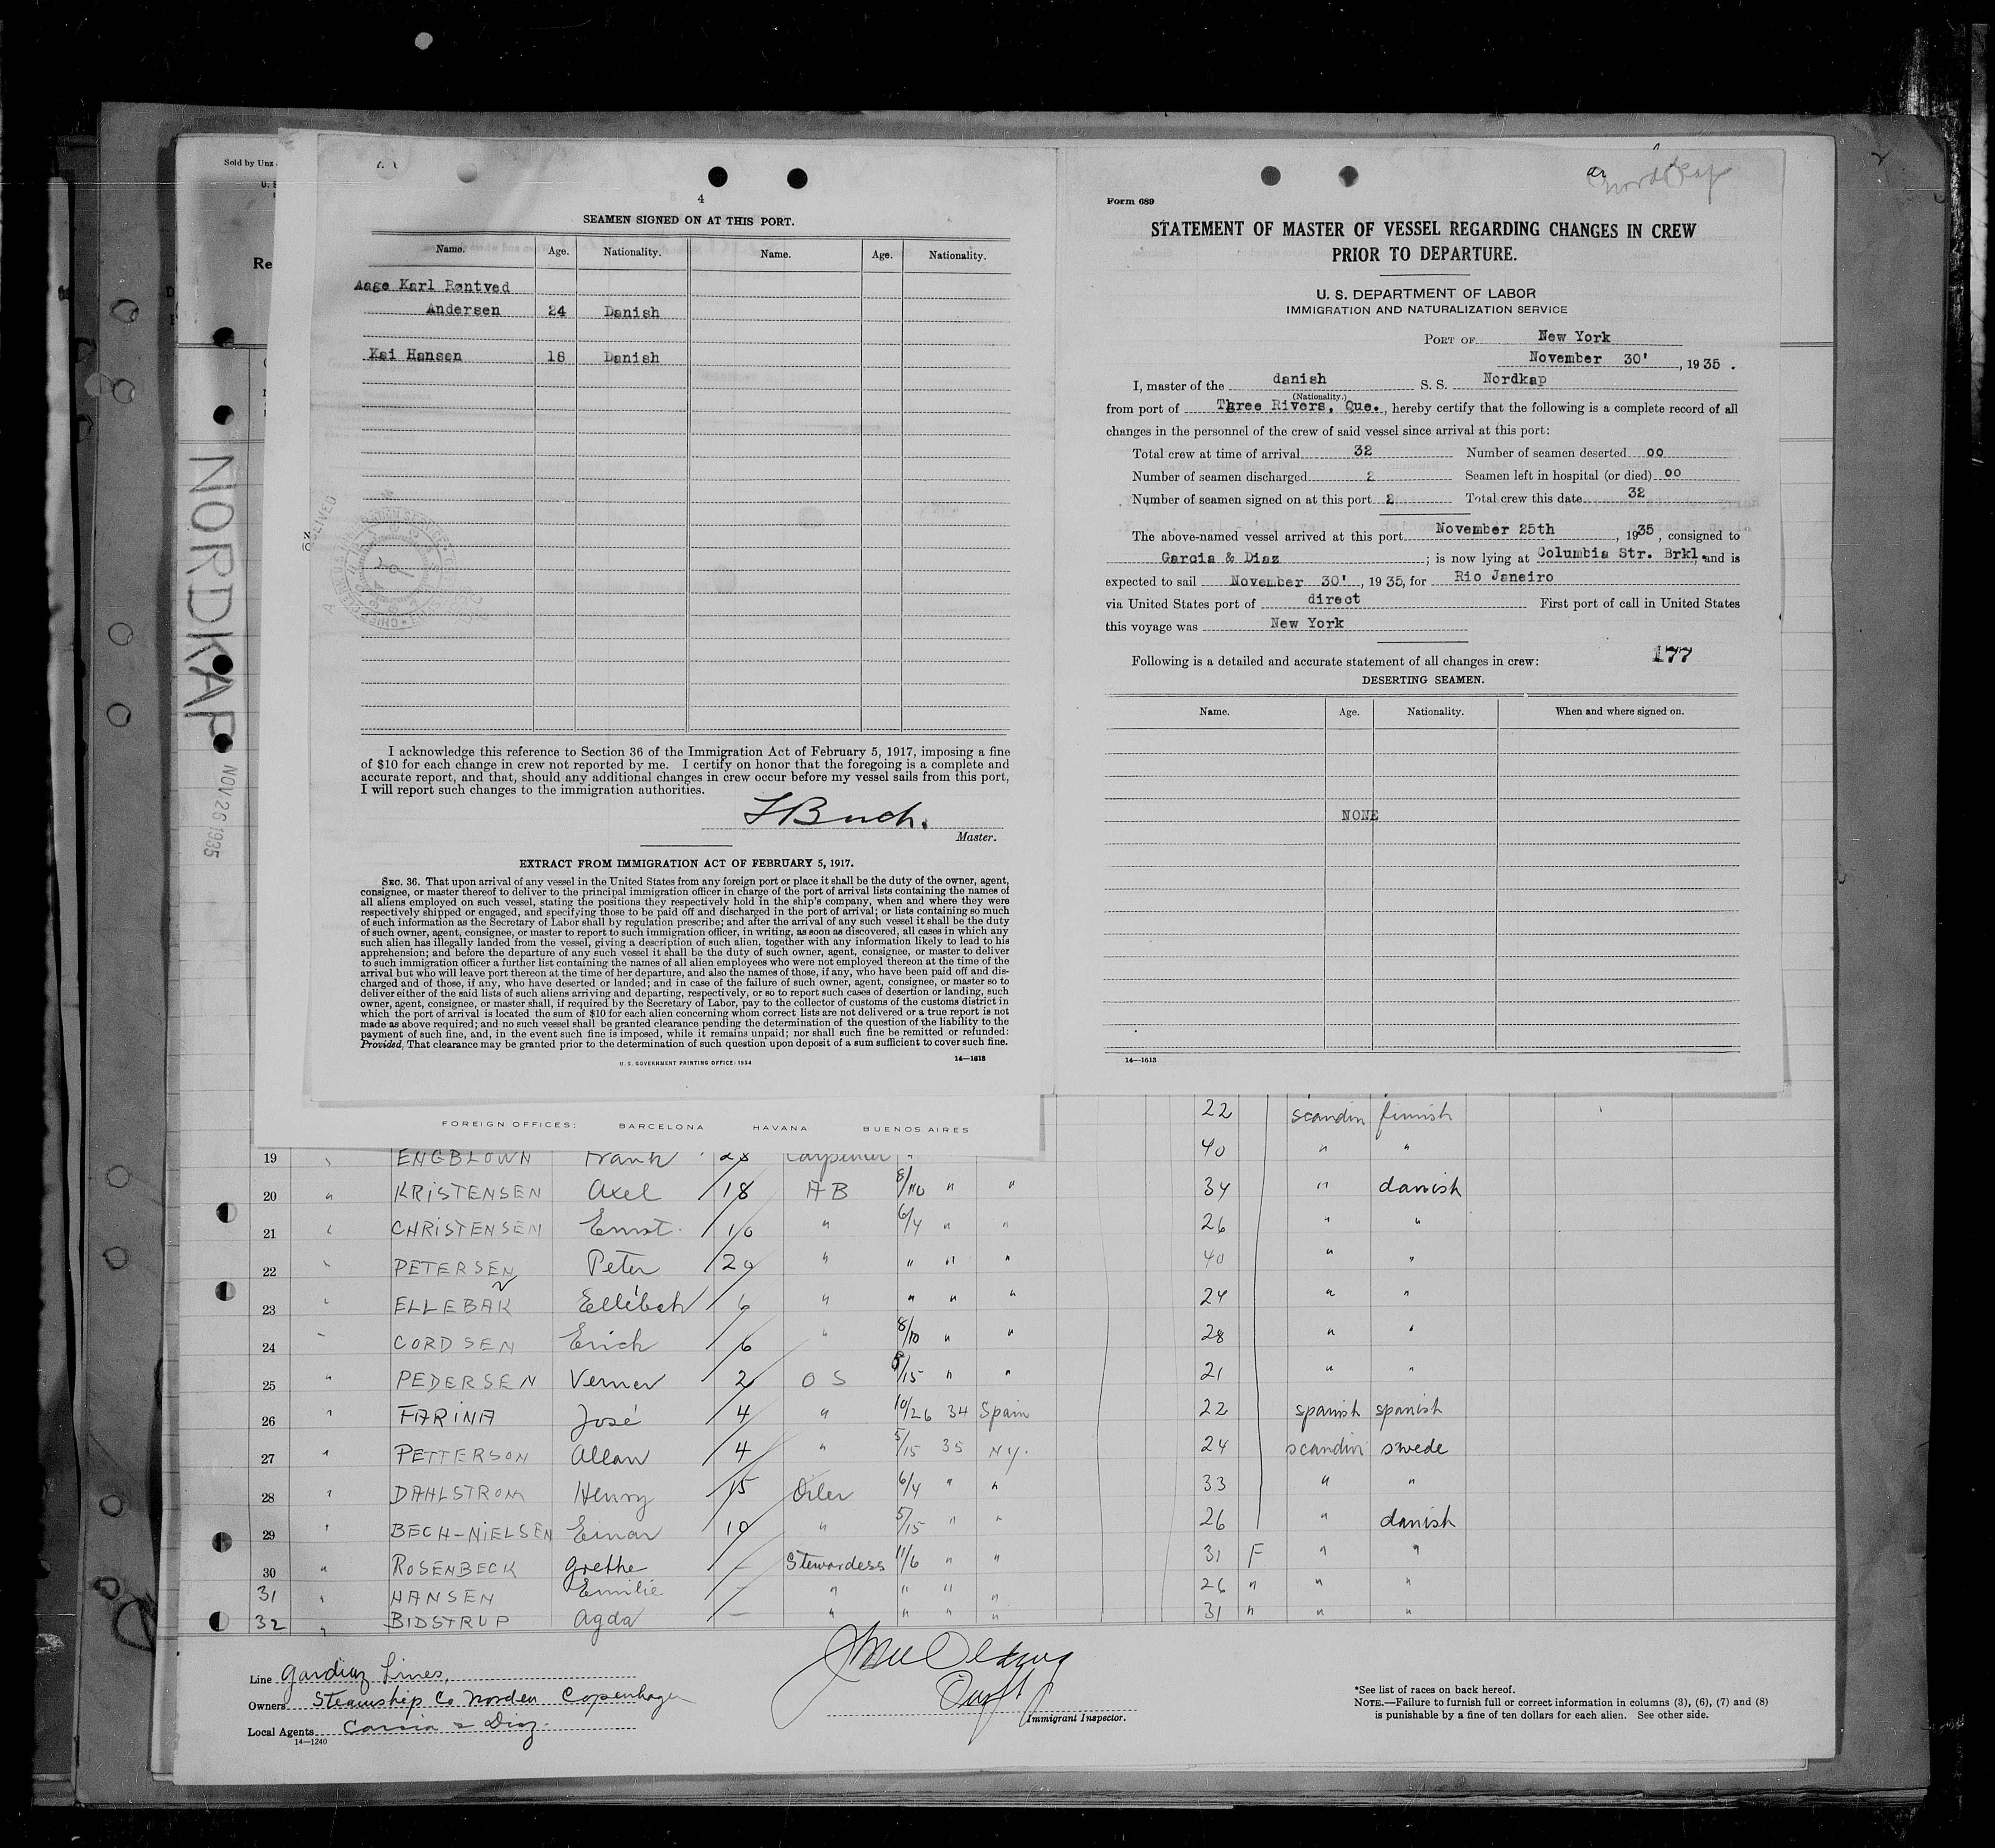 Sold by Unz
U. S
Re
NORDKAP
NOV 26 1935
4
SEAMEN SIGNED ON AT THIS PORT.
Name. Age. Nationality. Name. Age. Nationality.
Aage Karl Røntved
Andersen 24 Danish
Kai Hansen 18 Danish
I acknowledge this reference to Section 36 of the Immigration Act of February 5, 1917, imposing a fine
of $10 for each change in crew not reported by me. I certify on honor that the foregoing is a complete and
accurate report, and that, should any additional changes in crew occur before my vessel sails from this port,
I will report such changes to the immigration authorities.
Master.
EXTRACT FROM IMMIGRATION ACT OF FEBRUARY 5, 1917.
SEC. 36. That upon arrival of any vessel in the United States from any foreign port or place it shall be the duty of the owner, agent,
consignee, or master thereof to deliver to the principal immigration officer in charge of the port of arrival lists containing the names of
all aliens employed on such vessel, stating the positions they respectively hold in the ship's company, when and where they were
respectively shipped or engaged, and specifying those to be paid off and discharged in the port of arrival; or lists containing so much
of such information as the Secretary of Labor shall by regulation prescribe; and after the arrival of any such vessel it shall be the duty
of such owner, agent, consignee, or master to report to such immigration officer, in writing, as soon as discovered, all cases in which any
such alien has illegally landed from the vessel, giving a description of such alien, together with any information likely to lead to his
apprehension; and before the departure of any such vessel it shall be the duty of such owner, agent, consignee, or master to deliver
to such immigration officer a further list containing the names of all alien employees who were not employed thereon at the time of the
arrival but who will leave port thereon at the time of her departure, and also the names of those, if any, who have been paid off and dis-
charged and of those, if any, who have deserted or landed; and in case of the failure of such owner, agent, consignee, or master so to
deliver either of the said lists of such aliens arriving and departing, respectively, or so to report such cases of desertion or landing, such
owner, agent, consignee, or master shall, if required by the Secretary of Labor, pay to the collector of customs of the customs district in
which the port of arrival is located the sum of $10 for each alien concerning whom correct lists are not delivered or a true report is not
made as above required; and no such vessel shall be granted clearance pending the determination of the question of the liability to the
payment of such fine, and, in the event such fine is imposed, while it remains unpaid; nor shall such fine be remitted or refunded:
Provided, That clearance may be granted prior to the determination of such question upon deposit of a sum sufficient to cover such fine.
U. S. GOVERNMENT PRINTING OFFICE: 1934 14—1613
Nordkap
Form 689
STATEMENT OF MASTER OF VESSEL REGARDING CHANGES IN CREW
PRIOR TO DEPARTURE.
U. S. DEPARTMENT OF LABOR
IMMIGRATION AND NATURALIZATION SERVICE
PORT OF New York
November 30', 1935.
I, master of the danish S. S. Nordkap
(Nationality.)
from port of Three Rivers, Que., hereby certify that the following is a complete record of all
changes in the personnel of the crew of said vessel since arrival at this port:
Total crew at time of arrival 32 Number of seamen deserted oo
Number of seamen discharged 2 Seamen left in hospital (or died) oo
Number of seamen signed on at this port 2 Total crew this date 32
The above-named vessel arrived at this port November 25th, 1935, consigned to
Garcia & Diaz; is now lying at Columbia Str. Brkl. and is
expected to sail November 30', 1935, for Rio Janeiro
via United States port of direct First port of call in United States
this voyage was New York
Following is a detailed and accurate statement of all changes in crew: 177
DESERTING SEAMEN.
Name. Age. Nationality. When and where signed on.
NONE
14—1613
FOREIGN OFFICES: BARCELONA HAVANA BUENOS AIRES
22 scandin finnish
19 " ENGBLOWN Frank 28 Carpenter " 40 " "
20 " KRISTENSEN Axel 18 AB 8/10 " " 34 " danish
21 " CHRISTENSEN Ernst 10 " 6/4 " " 26 " "
22 " PETERSEN Peter 20 " " " " 40 " "
23 " ELLEBAK Ellebek 6 " " " " 24 " "
24 " CORDSEN Erich 6 " 8/10 " " 28 " "
25 " PEDERSEN Verner 2 OS 5/15 " " 21 " "
26 " FARINA José 4 " 10/26 34 Spain 22 spanish spanish
27 " PETTERSON Allan 4 " 5/15 35 NY. 24 scandin swede
28 " DAHLSTROM Henry 15 Oiler 6/4 " " 33 " "
29 " BECH-NIELSEN Einar 10 " 5/15 " " 26 " danish
30 " ROSENBECK Grethe — Stewardess 11/6 " " 31 F " "
31 " HANSEN Emilie — " " " " 26 " " "
32 " BIDSTRUP Agda — " " " " 31 " " "
Line Gardiaz Lines,
Owners Steamship Co Norden Copenhagen
Local Agents Garcia & Diaz.
14—1240
Immigrant Inspector.
*See list of races on back hereof.
NOTE.—Failure to furnish full or correct information in columns (3), (6), (7) and (8)
is punishable by a fine of ten dollars for each alien. See other side.